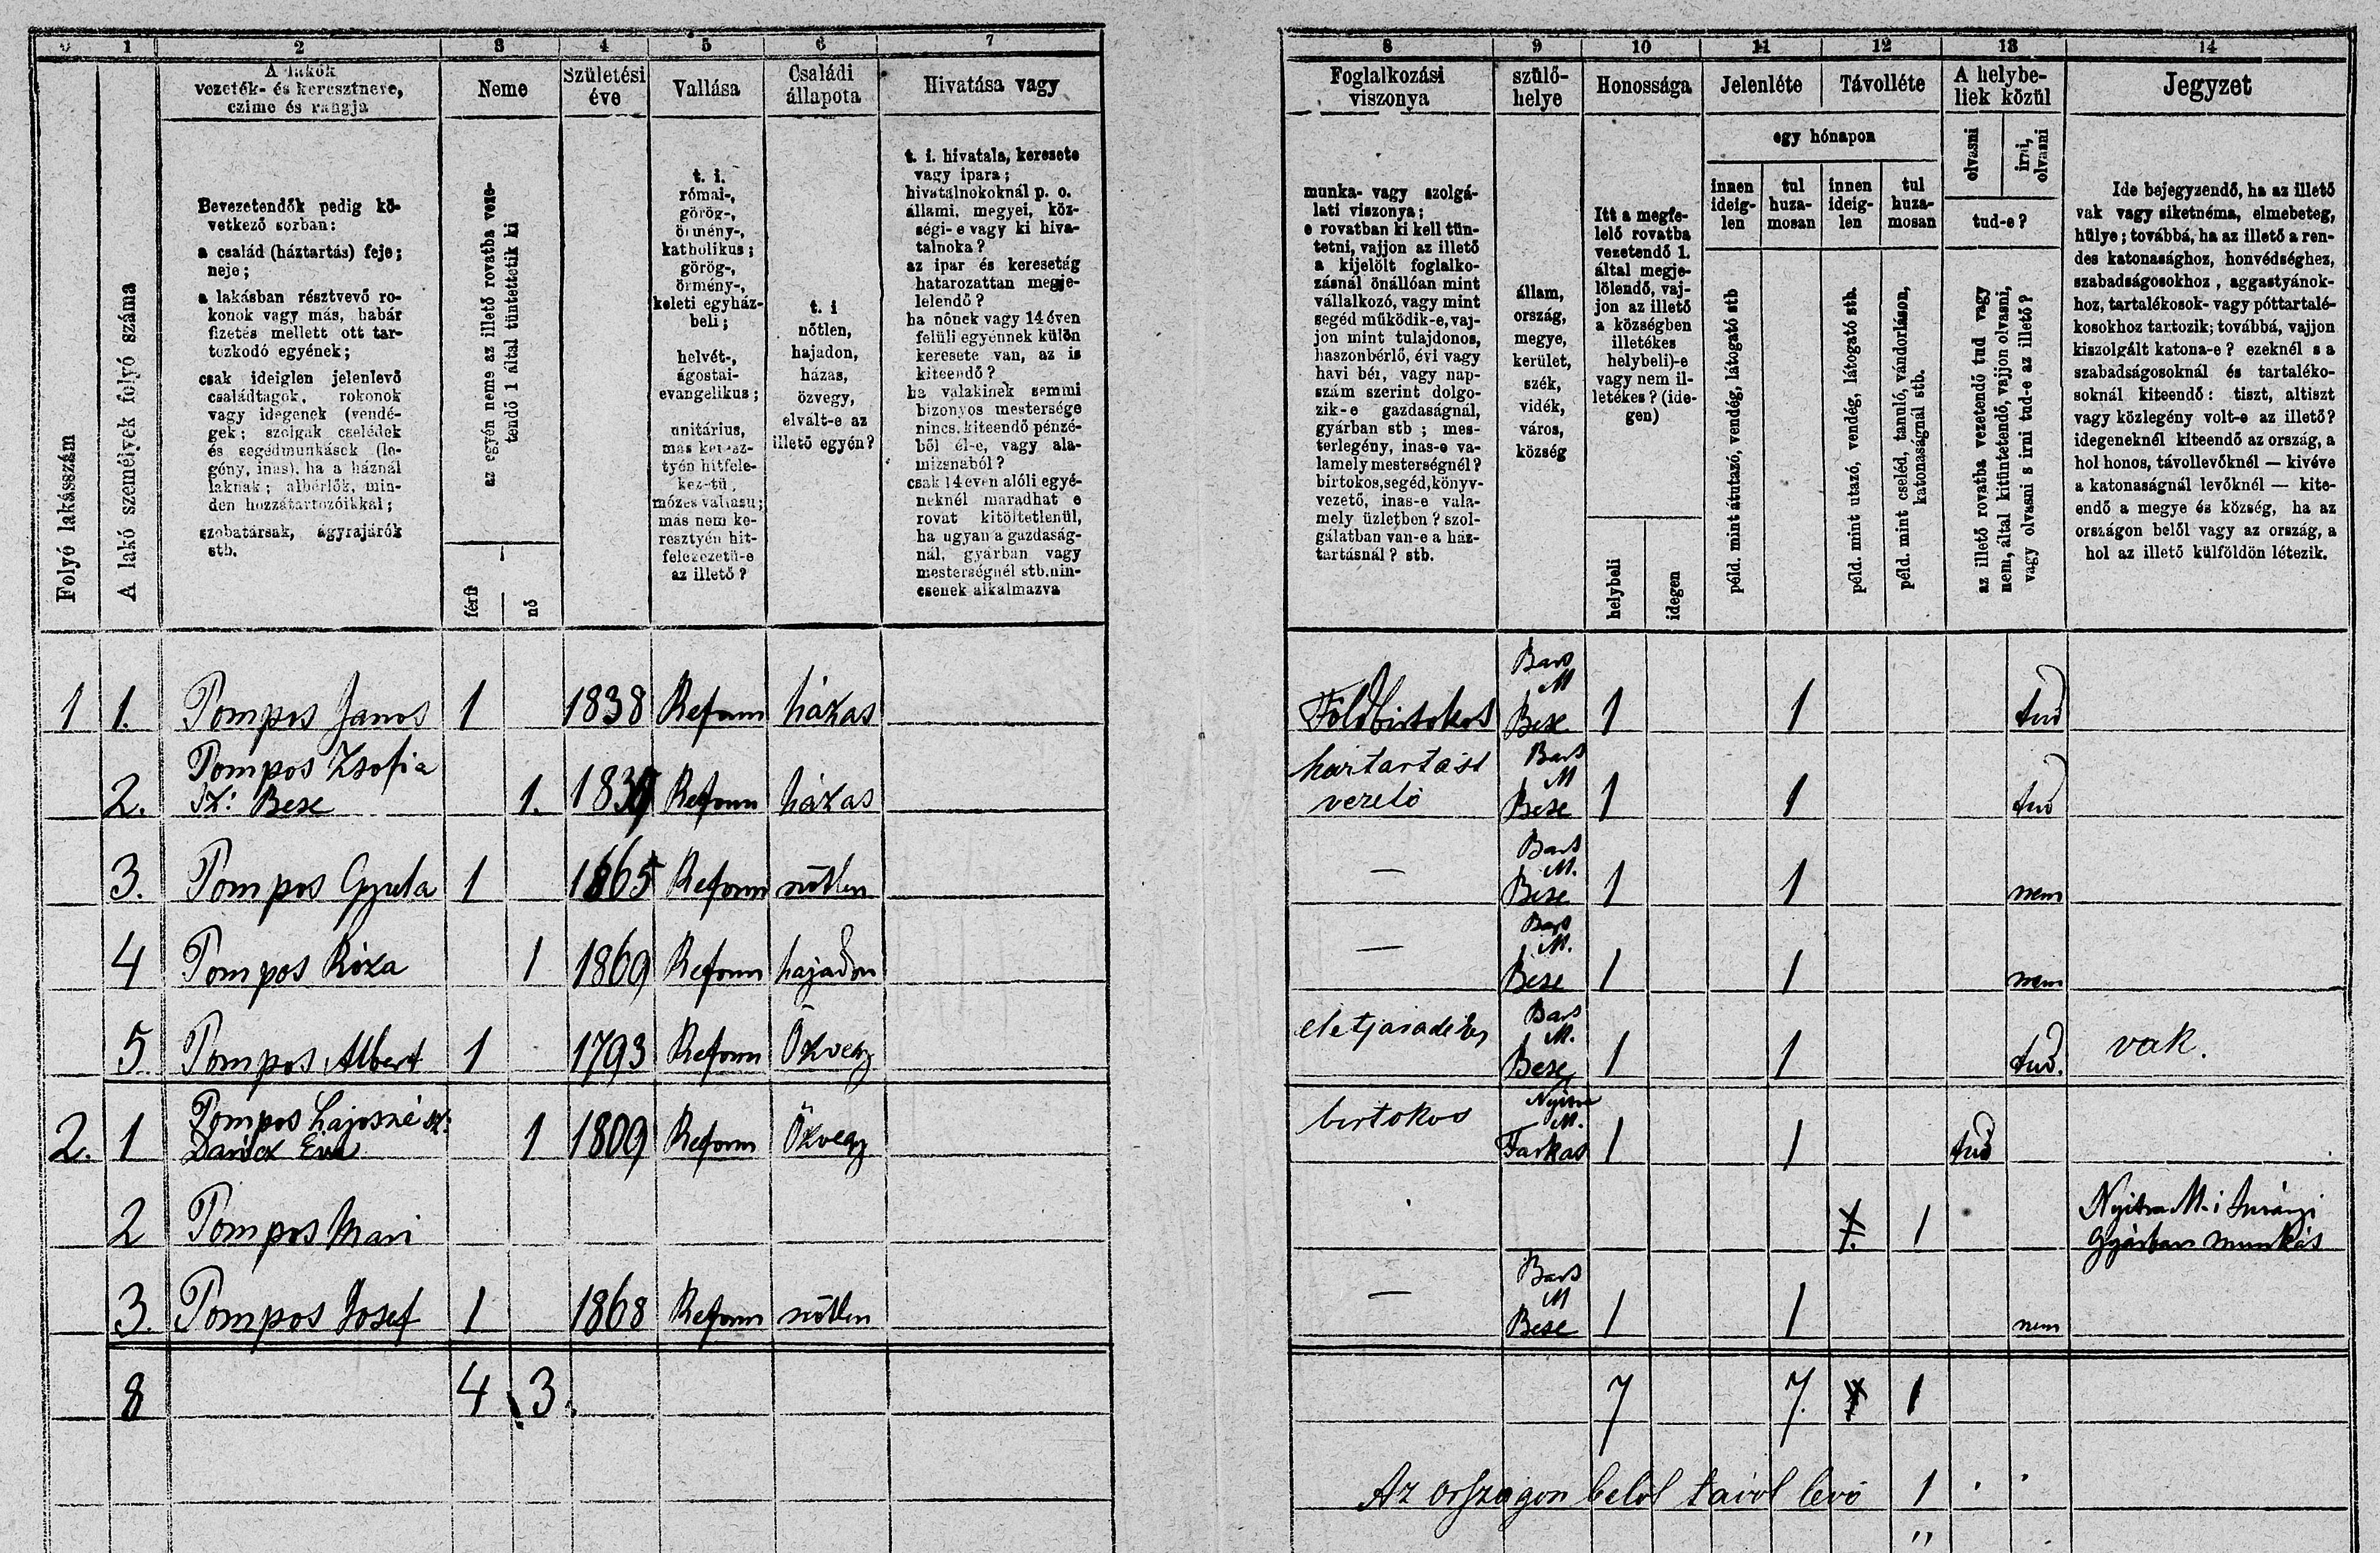 0 1 2 3 4 5 6 7
A lakók
vezeték- és keresztneve,
czime és rangja
Neme
Születési
éve
Vallása
Családi
állapota
Hivatása vagy
Folyó lakásszám
A lakó személyek folyó száma
Bevezetendők pedig kö-
vetkező sorban:
a család (háztartás) feje;
neje;
a lakásban résztvevő ro-
konok vagy más, habár
fizetés mellett ott tar-
tózkodó egyének;
csak ideiglen jelenlevő
családtagok, rokonok
vagy idegenek (vendé-
gek; szolgák cselédek
és segédmunkások (le-
gény, inas), ha a háznál
laknak; albérlők, min-
den hozzátartozóikkal;
szobatársak, ágyrajárók
stb.
az egyén neme az illető rovatba veze-
tendő 1 által tüntettetik ki
férfi
nő
t. i.
római-,
görög-,
örmény-,
katholikus;
görög-,
örmény-,
keleti egyház-
beli;
helvét-,
ágostai-
evangelikus;
unitárius,
más keresz-
tyén hitfele-
kez-tü,
mózes vallasu;
más nem ke-
resztyén hit-
felekezetü-e
az illető?
t. i
nőtlen,
hajadon,
házas,
özvegy,
elvált-e az
illető egyén?
t. i. hivatala, keresete
vagy ipara;
hivatalnokoknál p. o.
állami, megyei, köz-
ségi-e vagy ki hiva-
talnoka?
az ipar és keresetág
határozattan megje-
lelendő?
ha nőnek vagy 14 éven
felüli egyénnek külön
keresete van, az is
kiteendő?
ha valakinek semmi
bizonyos mestersége
nincs, kiteendő pénzé-
ből él-e, vagy ala-
mizsnából?
csak 14 éven alóli egyé-
neknél maradhat e
rovat kitöltetlenül,
ha ugyan a gazdaság-
nál, gyárban vagy
mesterségnél stb. nin-
csenek alkalmazva
8 9 10 11 12 13 14
Foglalkozási
viszonya
szülő-
helye
Honossága
Jelenléte
Távolléte
A helybe-
liek közül
Jegyzet
munka- vagy szolgá-
lati viszonya;
e rovatban ki kell tün-
tetni, vajjon az illető
a kijelölt foglalko-
zásnál önállóan mint
vállalkozó, vagy mint
segéd működik-e, vaj-
jon mint tulajdonos,
haszonbérlő, évi vagy
havi bér, vagy nap-
szám szerint dolgo-
zik-e gazdaságnál,
gyárban stb; mes-
terlegény, inas-e va-
lamely mesterségnél?
birtokos, segéd, könyv-
vezető, inas-e vala-
mely üzletben? szol-
gálatban van-e a ház-
tartásnál? stb.
állam,
ország,
megye,
kerület,
szék,
vidék,
város,
község
Itt a megfe-
lelő rovatba
vezetendő 1.
által megje-
lölendő, vaj-
jon az illető
a községben
illetékes
helybeli)-e
vagy nem il-
letékes? (ide-
gen)
helybeli
idegen
egy hónapon
innen
ideig-
len
tul
huza-
mosan
innen
ideig-
len
tul
huza-
mosan
péld. mint átutazó, vendég, látogató stb
péld. mint utazó, vendég, látogató stb.
péld. mint cseléd, tanuló, vándorláson,
katonaságnál stb.
olvasni
irni,
olvasni
tud-e?
az illető rovatba vezetendő tud vagy
nem, által kitüntetendő, vajjon olvasni,
vagy olvasni s irni tud-e az illető?
Ide bejegyzendő, ha az illető
vak vagy siketnéma, elmebeteg,
hülye; továbbá, ha az illető a ren-
des katonasághoz, honvédséghez,
szabadságosokhoz, aggastyánok-
hoz, tartalékosok- vagy póttartalé-
kosokhoz tartozik; továbbá, vajjon
kiszolgált katona-e? ezeknél s a
szabadságosoknál és tartaléko-
soknál kiteendő: tiszt, altiszt
vagy közlegény volt-e az illető?
idegeneknél kiteendő az ország, a
hol honos, távollevőknél — kivéve
a katonaságnál levőknél — kite-
endő a megye és község, ha az
országon belől vagy az ország, a
hol az illető külföldön létezik.
1 1. Pompos Janos 1 1838 Reform házas Földbirtokos Bars M Bese 1 1 tud
2. Pompos Zsofia
sz: Bese 1. 1839 Reform házas haztartást vezető Bars M Bese 1 1 tud
3. Pompos Gyula 1 1865 Reform nőtlen — Bars M. Bese 1 1 nem
4 Pompos Róza 1 1869 Reform hajadon — Bars M. Bese 1 1 nem
5 Pompos Albert 1 1793 Reform Özvegy Bars M. Bese 1 1 tud. vak.
2. 1 Pompos Lajosné sz:
Eva 1 1809 Reform Özvegy birtokos Nyitra M. Farkas 1 1 tud
2 Pompos Mari 1 Nyitra M. i Surányi
Gyárban munkás
3. Pompos Josef 1 1868 Reform nőtlen — Bars M Bese 1 1 nem
8 4 3 7 7. 1
Az orszagon belől távol levő 1
"